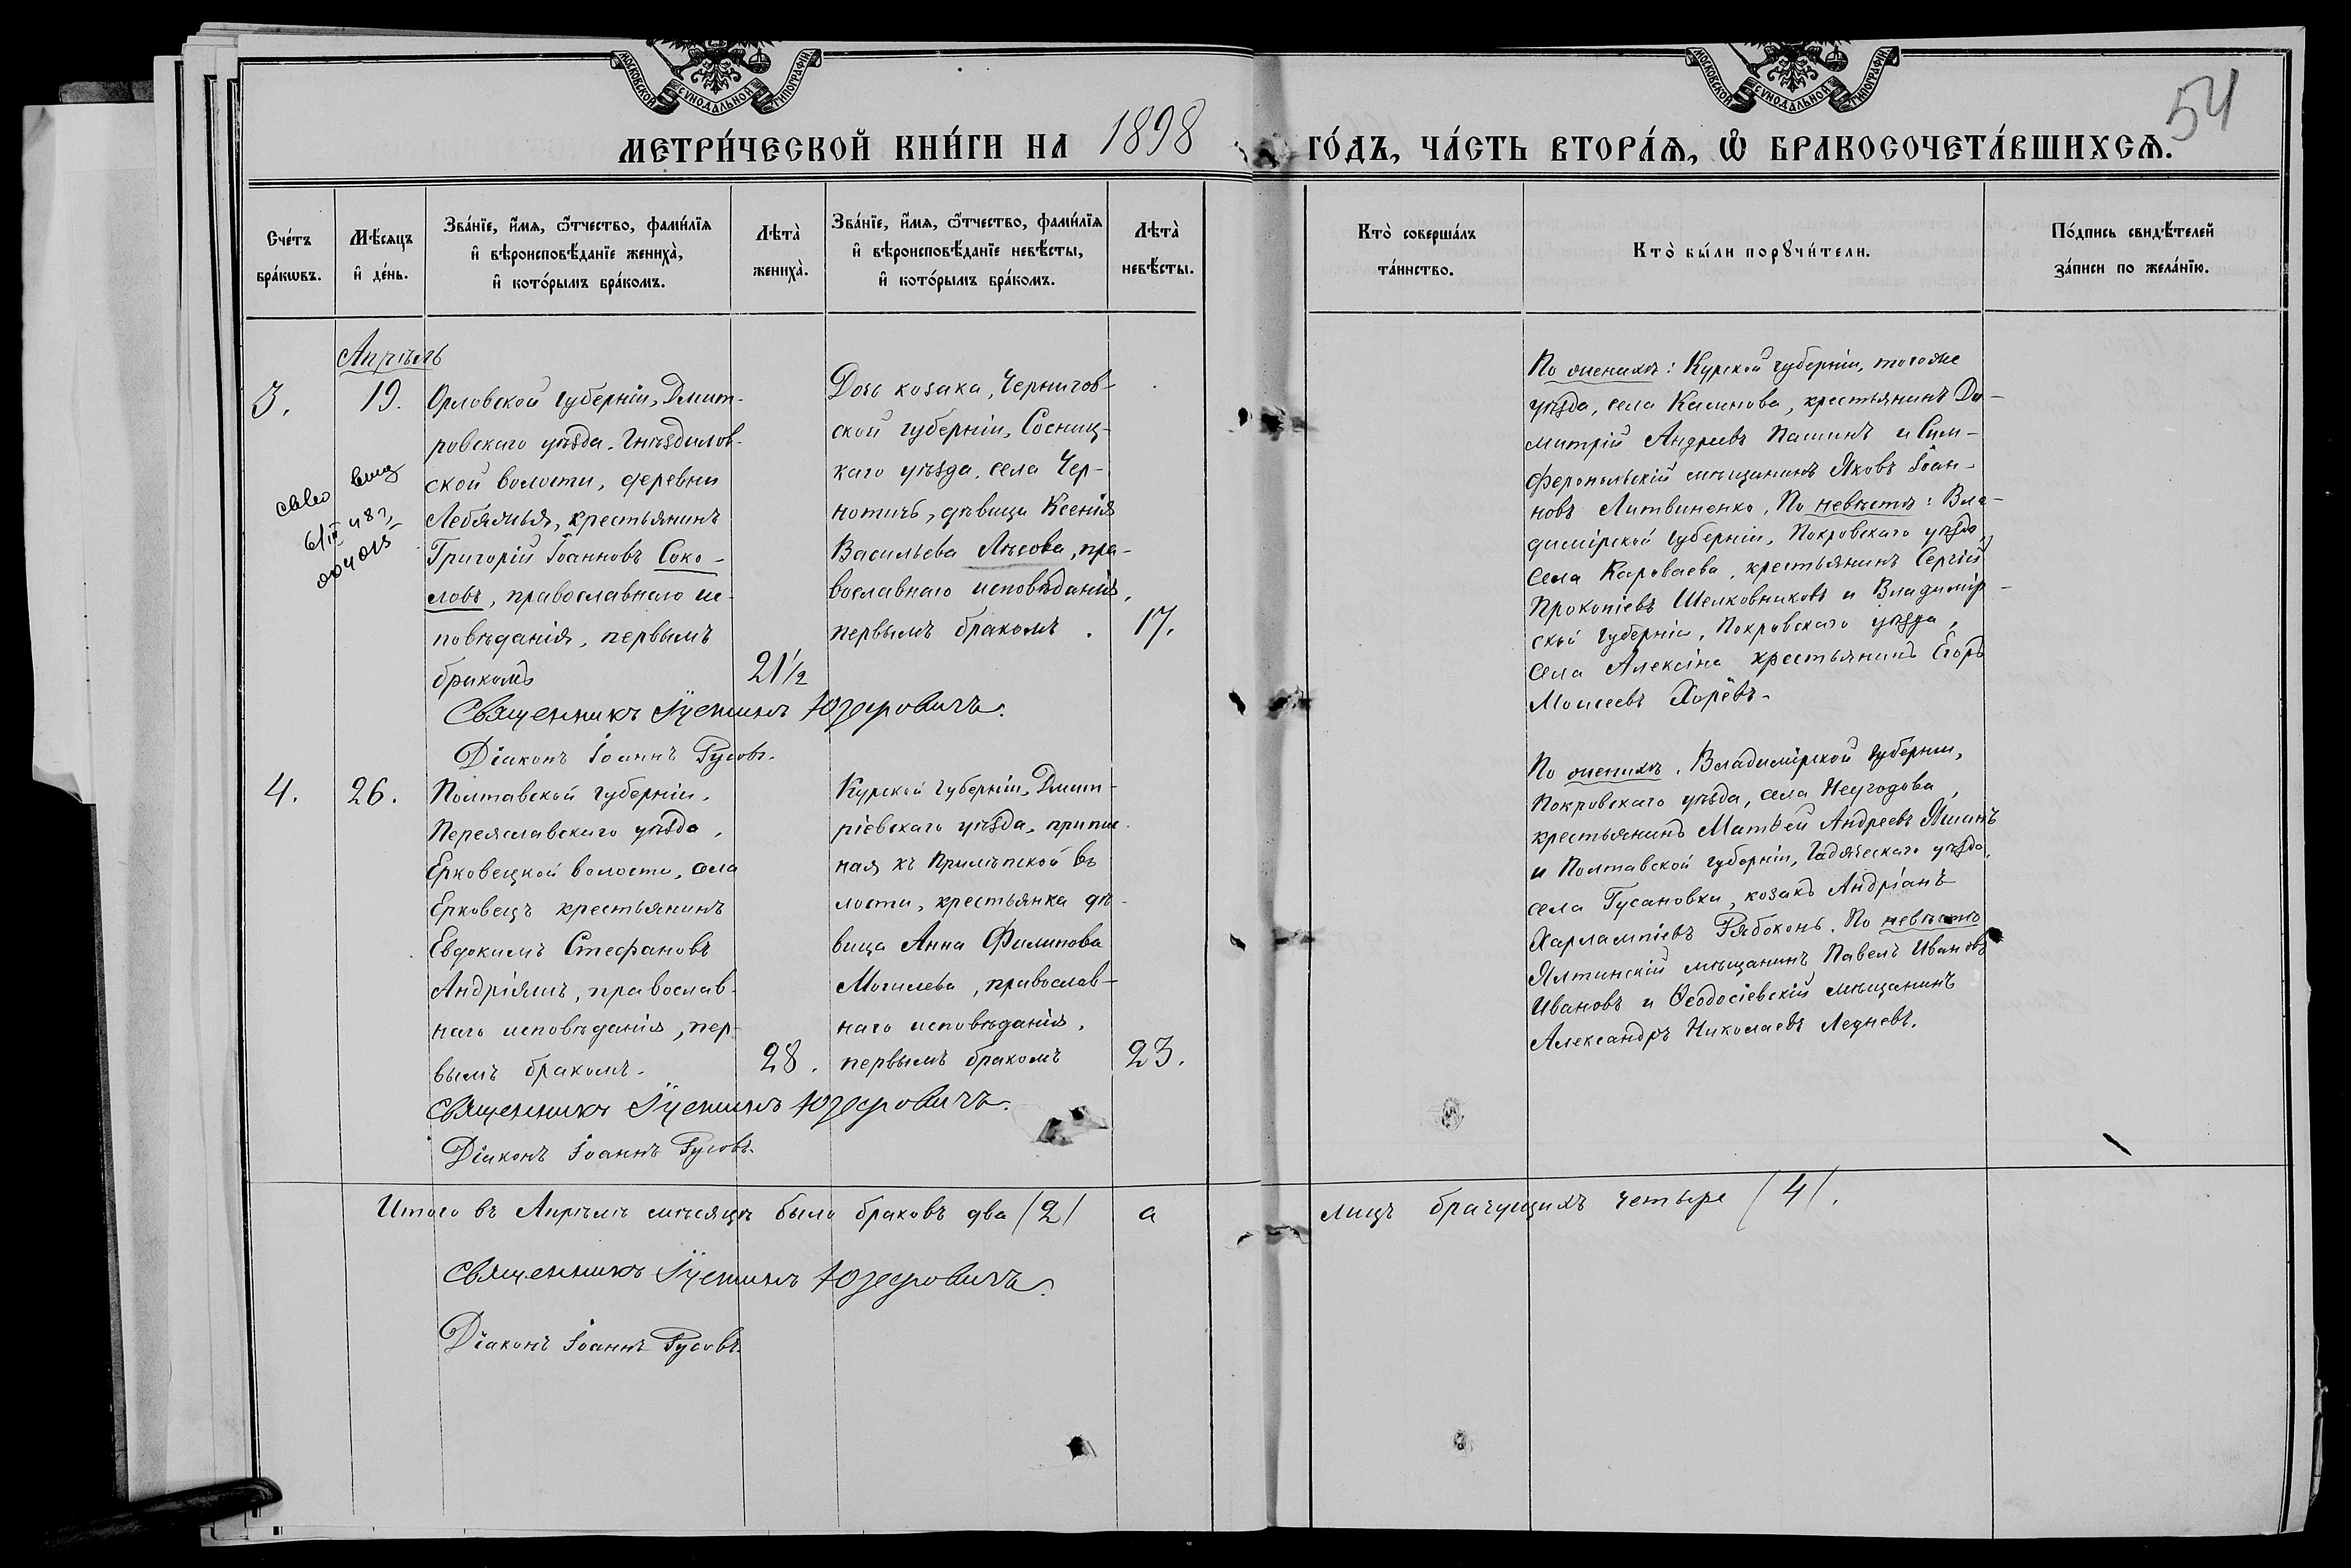 МОСКОВСКОЙ СУНОДАЛЬНОЙ ТИПОГРАФІИ.
МОСКОВСКОЙ СУНОДАЛЬНОЙ ТИПОГРАФІИ.
54
МЕТРИ́ЧЕСКОЙ КНИ́ГИ НА 1898 ГО́ДЪ, ЧА́СТЬ ВТОРА́Ѧ, Ѽ БРАКОСОЧЕТА́ВШИХСѦ.
Сче́тъ бра́кѡвъ.
Мѣ́сяцъ и҆ де́нь.
Зва́нїе, и҆́мѧ, ѻ҆́тчество, фами́лїѧ
и҆ вѣроисповѣ́данїе жениха̀,
и҆ кото́рымъ бра́комъ.
Лѣта̀ жениха̀.
Зва́нїе, и҆́мѧ, ѻ҆́тчество, фами́лїѧ
и҆ вѣроисповѣ́данїе невѣ́сты,
и҆ кото́рымъ бра́комъ.
Лѣта̀ невѣ́сты.
Кто̀ соверша́лъ та́инство.
Кто̀ бы́ли порꙋчи́тели.
По́дпись свидѣ́телей за́писи по жела́нїю.
Апрѣль
3.
19.
Орловской губерніи, Дмит-
ровскаго уѣзда, Гнѣздилов-
ской волости, деревни
Лебяжья, крестьянинъ
Григорій Іоанновъ Соко-
ловъ, православнаго ис-
повѣданія, первымъ
бракомъ
21½
Дочь козака, Чернигов-
ской губерніи, Сосниц-
каго уѣзда, села Чер-
нотичь, дѣвица Ксенія
Васильева Лѣсова, пра-
вославнаго исповѣданія,
первымъ бракомъ.
17.
Священникъ Іустинъ Юзефовичъ.
Діаконъ Іоаннъ Русовъ.
По женихѣ: Курской губерніи, тогоже
уѣзда, села Касинова, крестьянинъ Ди-
митрій Андреевъ Пашинъ и Сим-
феропольскій мѣщанинъ Яковъ Іоан-
новъ Литвиненко. По невѣстѣ: Вла-
димірской губерніи, Покровскаго уѣзда,
села Караваева, крестьянинъ Сергій
Прокопіевъ Шелковниковъ и Владимір-
ской губерніи, Покровскаго уѣзда,
села Алексіна крестьянинъ Егоръ
Моисеевъ Хорёвъ.
4.
26.
Полтавской губерніи,
Переяславскаго уѣзда,
Ерковецкой волости, села
Ерковецъ крестьянинъ
Евдокимъ Стефановъ
Андріяшъ, православ-
наго исповѣданія, пер-
вымъ бракомъ.
28.
Курской губерніи, Дмит-
ріевскаго уѣзда, припис-
ная къ Прилѣпской во
лости, крестьянка дѣ-
вица Анна Филипова
Могилева, православ-
наго исповѣданія,
первымъ бракомъ
23.
Священникъ Іустинъ Юзефовичъ.
Діаконъ Іоаннъ Русовъ.
По женихѣ. Владимірской губерніи,
Покровскаго уѣзда, села Неугодова,
крестьянинъ Матѳей Андреевъ Яшинъ
и Полтавской губерніи, Гадяческаго уѣзда,
села Русановки, козакъ Андріанъ
Харлампіевъ Рябоконь. По невѣстѣ
Ялтинскій мѣщанинъ Павелъ Ивановъ
Ивановъ и Ѳеодосіевскій мѣщанинъ
Александръ Николаевъ Ледневъ.
Итого въ Апрѣлѣ мѣсяцѣ было браковъ два (2) а лицъ брачущихъ четыре (4).
Священникъ Іустинъ Юзефовичъ.
Діаконъ Іоаннъ Русовъ.